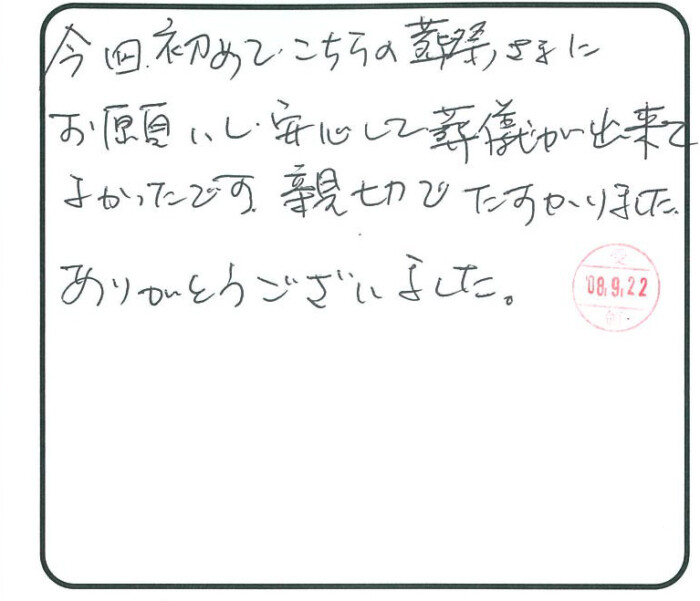 今回、初めて、こちらの葬祭さまに
お願いし、安心して葬儀が出来て
よかったです。親切でたすかりました。
ありがとうございました。
受
'08.9.22